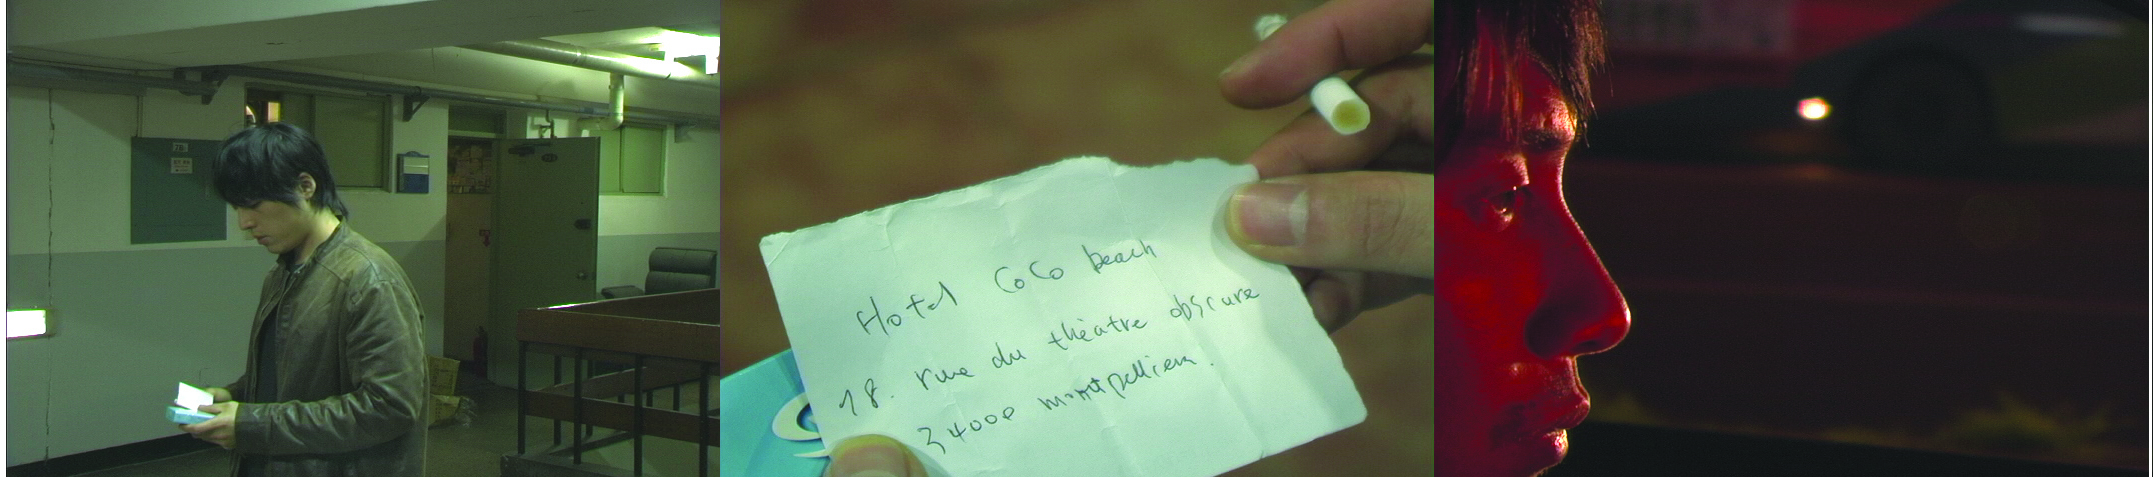 Hotel CoCo beach
18. rue du théatre obscure
34000 montpellier.